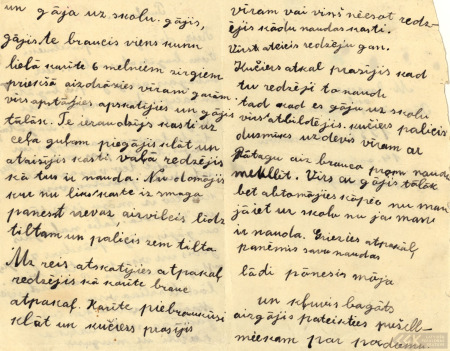 un gāja uz skolu. gājis,
gājis, te braucis viens kungs
lielā karīte 6 melniem zirgiem
priekšā aizdrāzies viram garām.
virs apstājies apskatījies un gājis
tālāk. Te ieraudzījs kasti uz
ceļa guļam piegājis klāt un
ataisījis kasti vaļā redzējis
kā tur ir nauda. Nu domājis
kur nu liks kaste ir smaga
panest nevar, aizvilcis līdz
tiltam un palicis zem tilta
Mz reis atskatījies atpakaļ
redzējis kā karīte brauc
atpakaļ. Karīte piebraukusi
klāt un kučiers prasījis
viram vai viņš neesot redz-
ējis kādu naudas kasti.
Virs ateicis redzēju gan.
Kučiers atkal prasījis kad
tu redzēji to naudu
tad kad es gāju uz skolu
virs atbildējis. kučiers palicis
dusmīks uzdevis viram ar
Pātagu aiz brauca prom naudu
meklēt. Virs ar gājis tālāk
bet abtomājies kāpēc nu man
jāiet uz skolu nu jau man
ir nauda. Griezies atpakaļ
panēmis savu naudas
lādi pānesis māja
un kļuvis bagāts
aizgājis pateikties pušelb-
niekam par padomu.